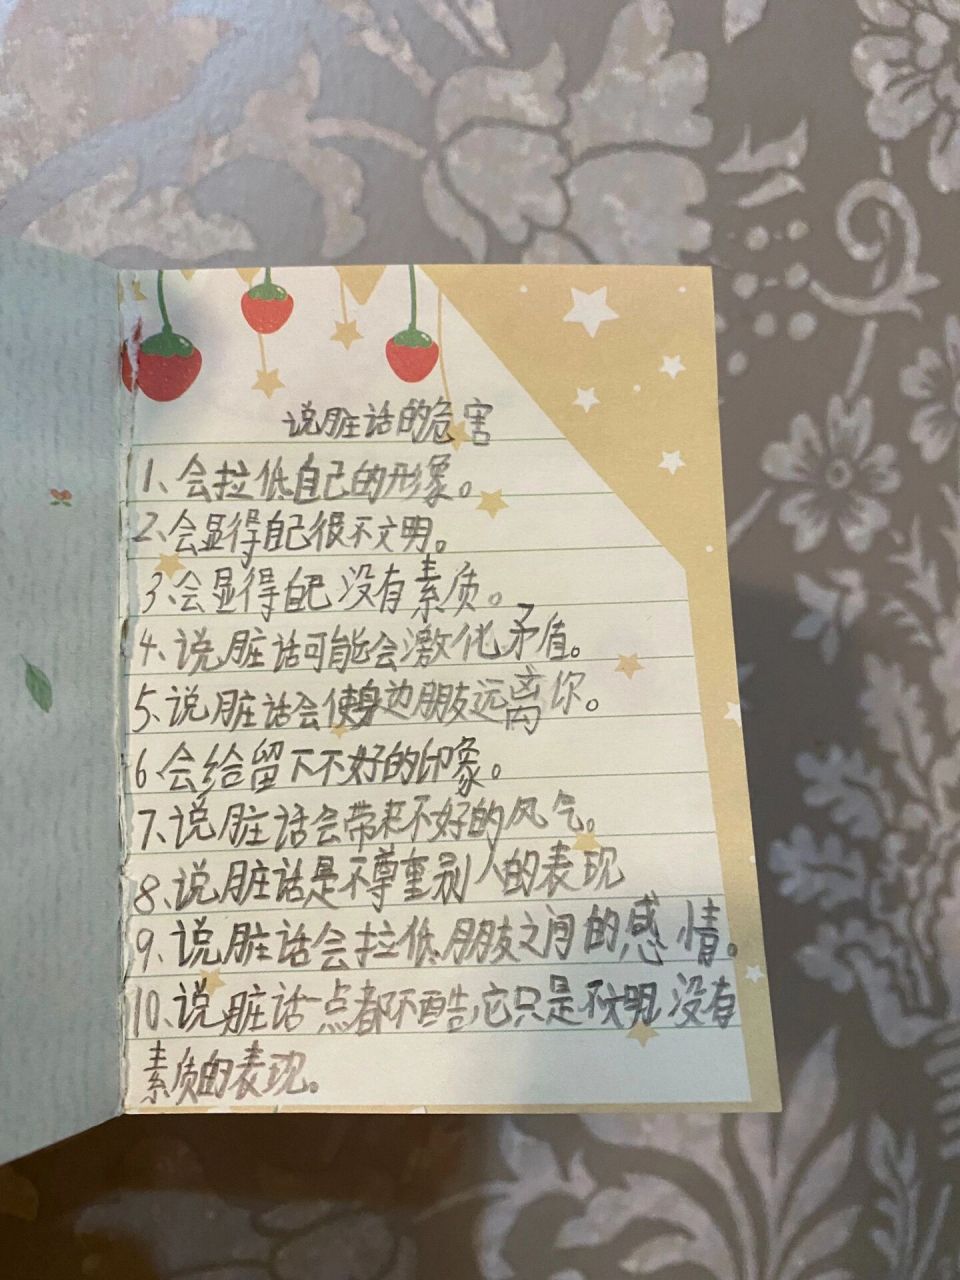 说脏话的危害
1、会拉低自己的形象。
2、会显得自己很不文明。
3、会显得自己没有素质。
4、说脏话可能会激化矛盾。
5、说脏话会使身边朋友远离你。
6、会给留下不好的印象。
7、说脏话会带来不好的风气。
8、说脏话是不尊重别人的表现
9、说脏话会拉低朋友之间的感情。
10、说脏话一点都不酷,它只是不文明,没有
素质的表现。